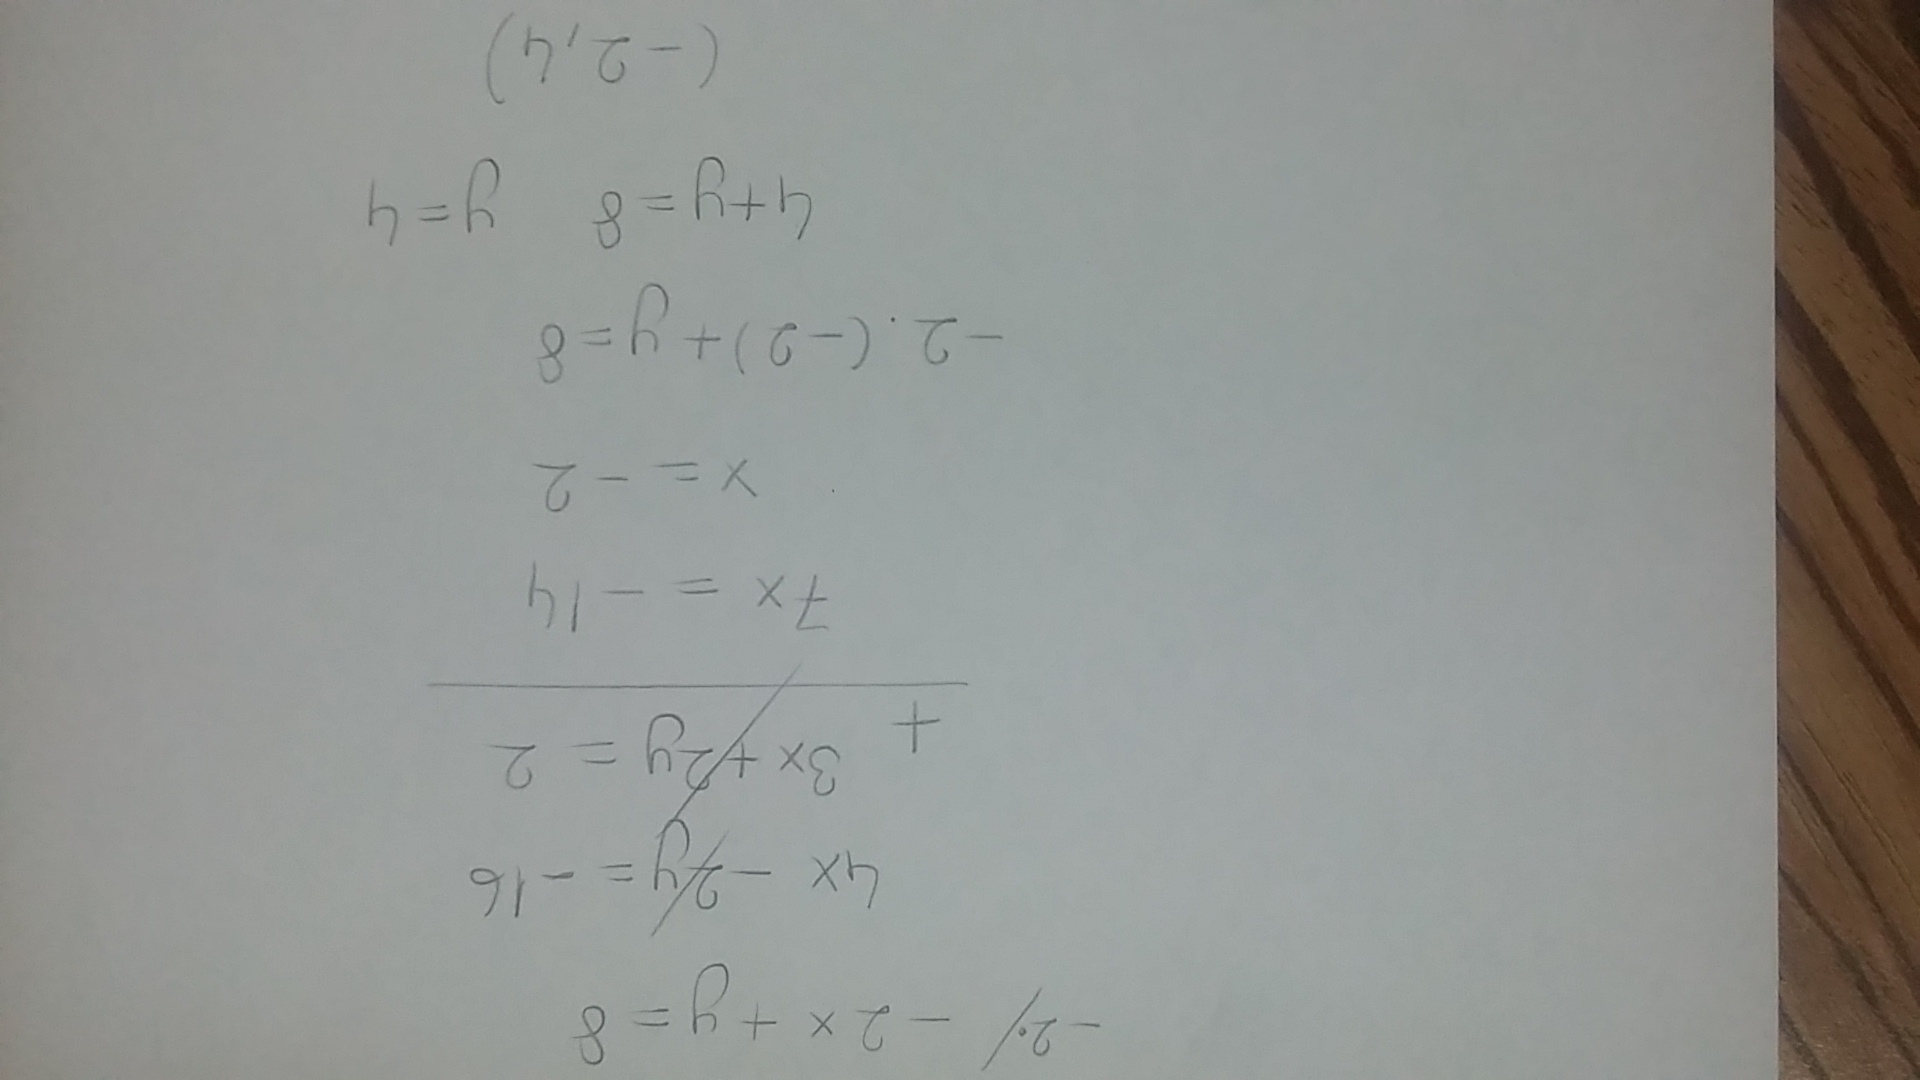 -2·/ -2x + y = 8
4x - 2y = -16
3x + 2y = 2
+
7x = -14
x = -2
-2·(-2)+y=8
4+y=8 y=4
(-2,4)